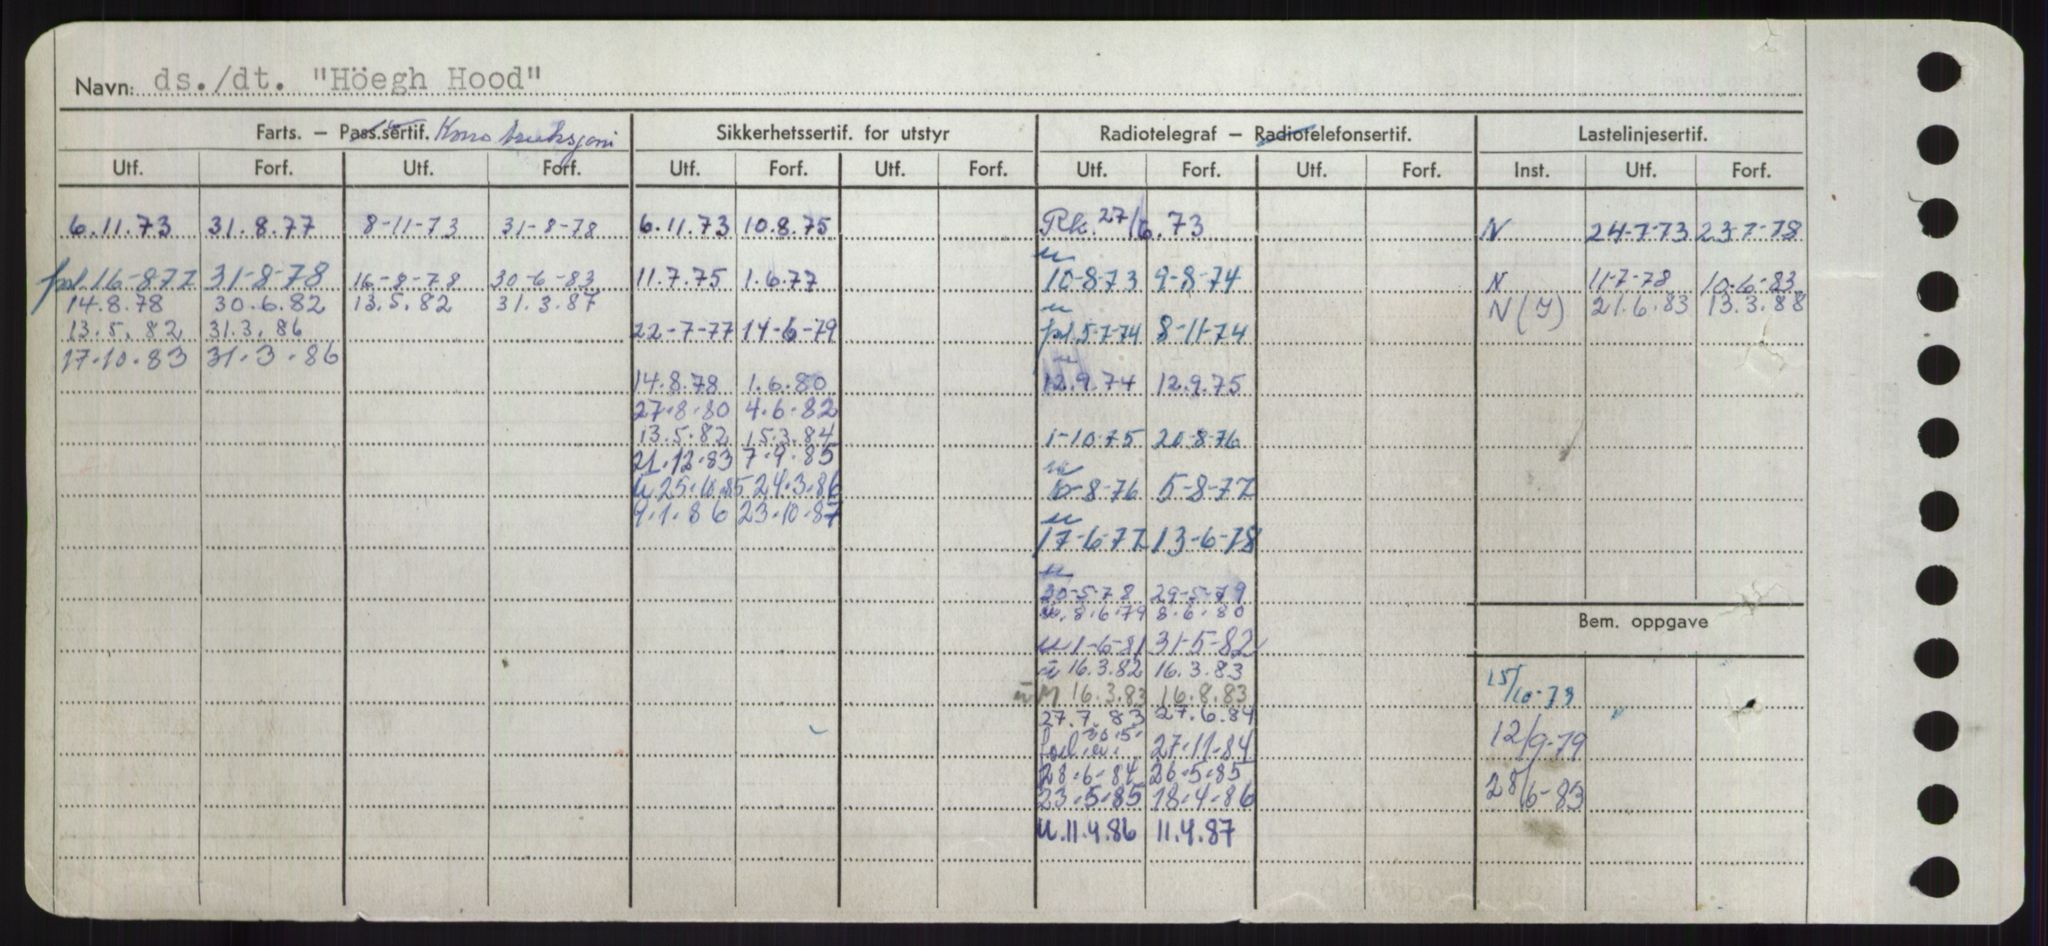 Navn: ds./dt. "Höegh Hood"
Farts. – Pass.sertif. Konstruksjons Sikkerhetssertif. for utstyr Radiotelegraf – Radiotelefonsertif. Lastelinjesertif.
Utf. Forf. Utf. Forf. Utf. Forf. Utf. Forf. Utf. Forf. Utf. Forf. Inst. Utf. Forf.
6.11.73 31.8.77 8-11-73 31-8-78 6.11.73 10.8.75 Rk. 27/6.73 N 24-7-73 23-7-78
u
16-8-77 31-8-78 16-8-78 30-6-83 11.7.75 1.6.77 10-8-73 9-8-74 N 11-7-78 10-6-83
14.8.78 30.6.82 13.5.82 31.3.87 u N(I) 21.6.83 13.3.88
13.5.82 31.3.86 22-7-77 14-6-79 pl. 5-7-74 8-11-74
17.10.83 31.3.86
14.8.78 1.6.80 12.9.74 12.9.75
27.8.80 4.6.82
13.5.82 15.3.84 1-10-75 20-8-76
21.12.83 7.9.85
u 25.10.85 24.3.86 6-8-76 5-8-77
9.1.86 23.10.87 u
17-6-77 13-6-78
u
30-5-78 29-5-79
u. 8.6.79 8.6.80
Bem. oppgave
u 1-6-81 31-5-82
u 16.3.82 16.3.83
u M 16.3.83 16.8.83 15/10-73
27.7.83 27.6.84
27.11.84 12/9-79
28.6.84 26.5.85
23.5.85 18.4.86 28/6-83
u. 11.4.86 11.4.87